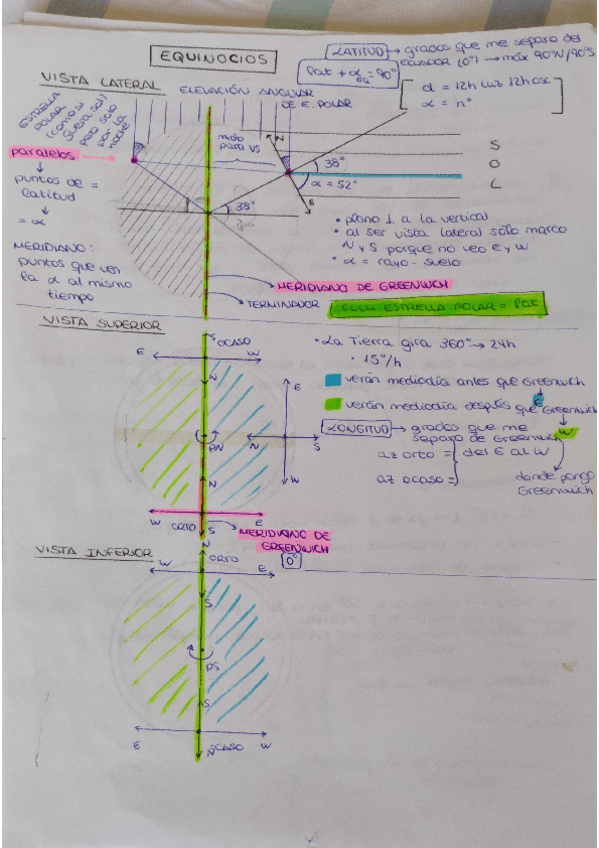 EQUINOCIOS
LATITUD → grados que me separo del
ECUADOR (0º) → máx 90ºN/90ºS
lat + α = 90º
α = 12h luz 12h osc
α = nº
VISTA LATERAL
ELEVACIÓN ANGULAR
DE E. POLAR
ESTRELLA
POLAR
(como si
fuera sol)
pero solo
por la
noche
paralelos
puntos de =
latitud
= α
MERIDIANO:
puntos que ven
la α al mismo
tiempo
mido
para VS
N
S
38º
α = 52º
38º
S
O
L
• plano ⊥ a la vertical
• al ser vista lateral sólo marco
N y S porque no veo E y W
• α = rayo-suelo
MERIDIANO DE GREENWICH
TERMINADOR
ESTRELLA POLAR = lat
VISTA SUPERIOR
OCASO
E
W
N
PN
N
W
ORTO
S
E
E
N
S
W
MERIDIANO DE
GREENWICH
0º
• La Tierra gira 360º → 24h
• 15º/h
verán mediodía antes que Greenwich
E
verán mediodía después que Greenwich
W
LONGITUD → grados que me
separo de Greenwich
az orto =
az ocaso =
del E al W
donde pongo
Greenwich
VISTA INFERIOR
N
ORTO
W
E
S
PS
S
E
N
OCASO
W